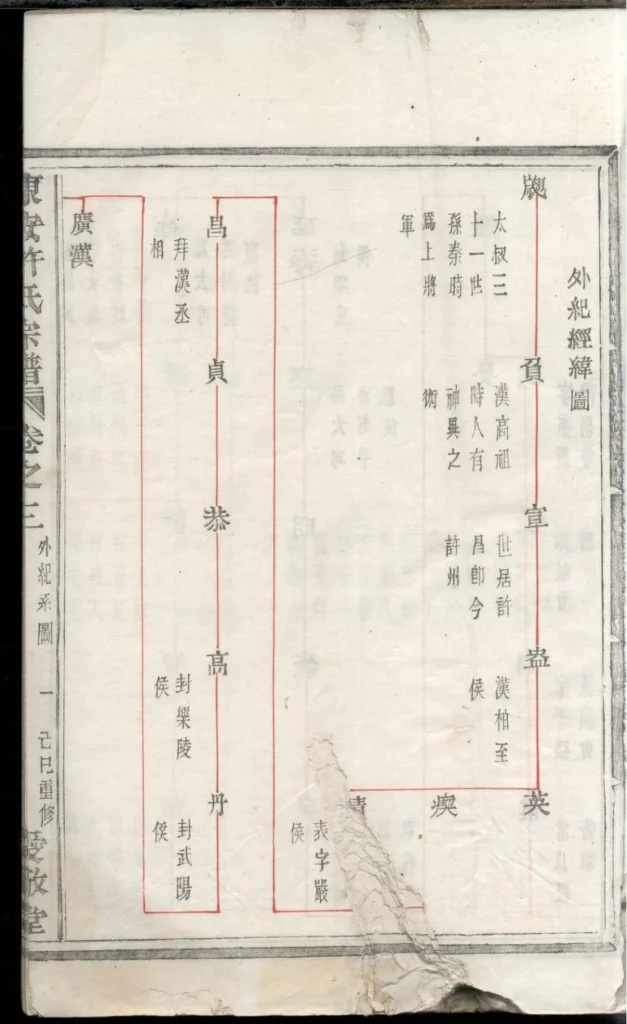 外紀經緯圖
颹
太叔三
十一世
孫秦時
爲上將
軍
負
漢高祖
時人有
神異之
術
宣
世居許
昌卽今
許州
㿽
漢柏至
侯
英
瘈
表字嚴
侯
昌
拜漢丞
相
貞
恭
高
封樂陵
侯
丹
封武陽
侯
廣漢
東安許氏宗譜
卷之三
外紀系圖
一
己巳重修
愛敬堂